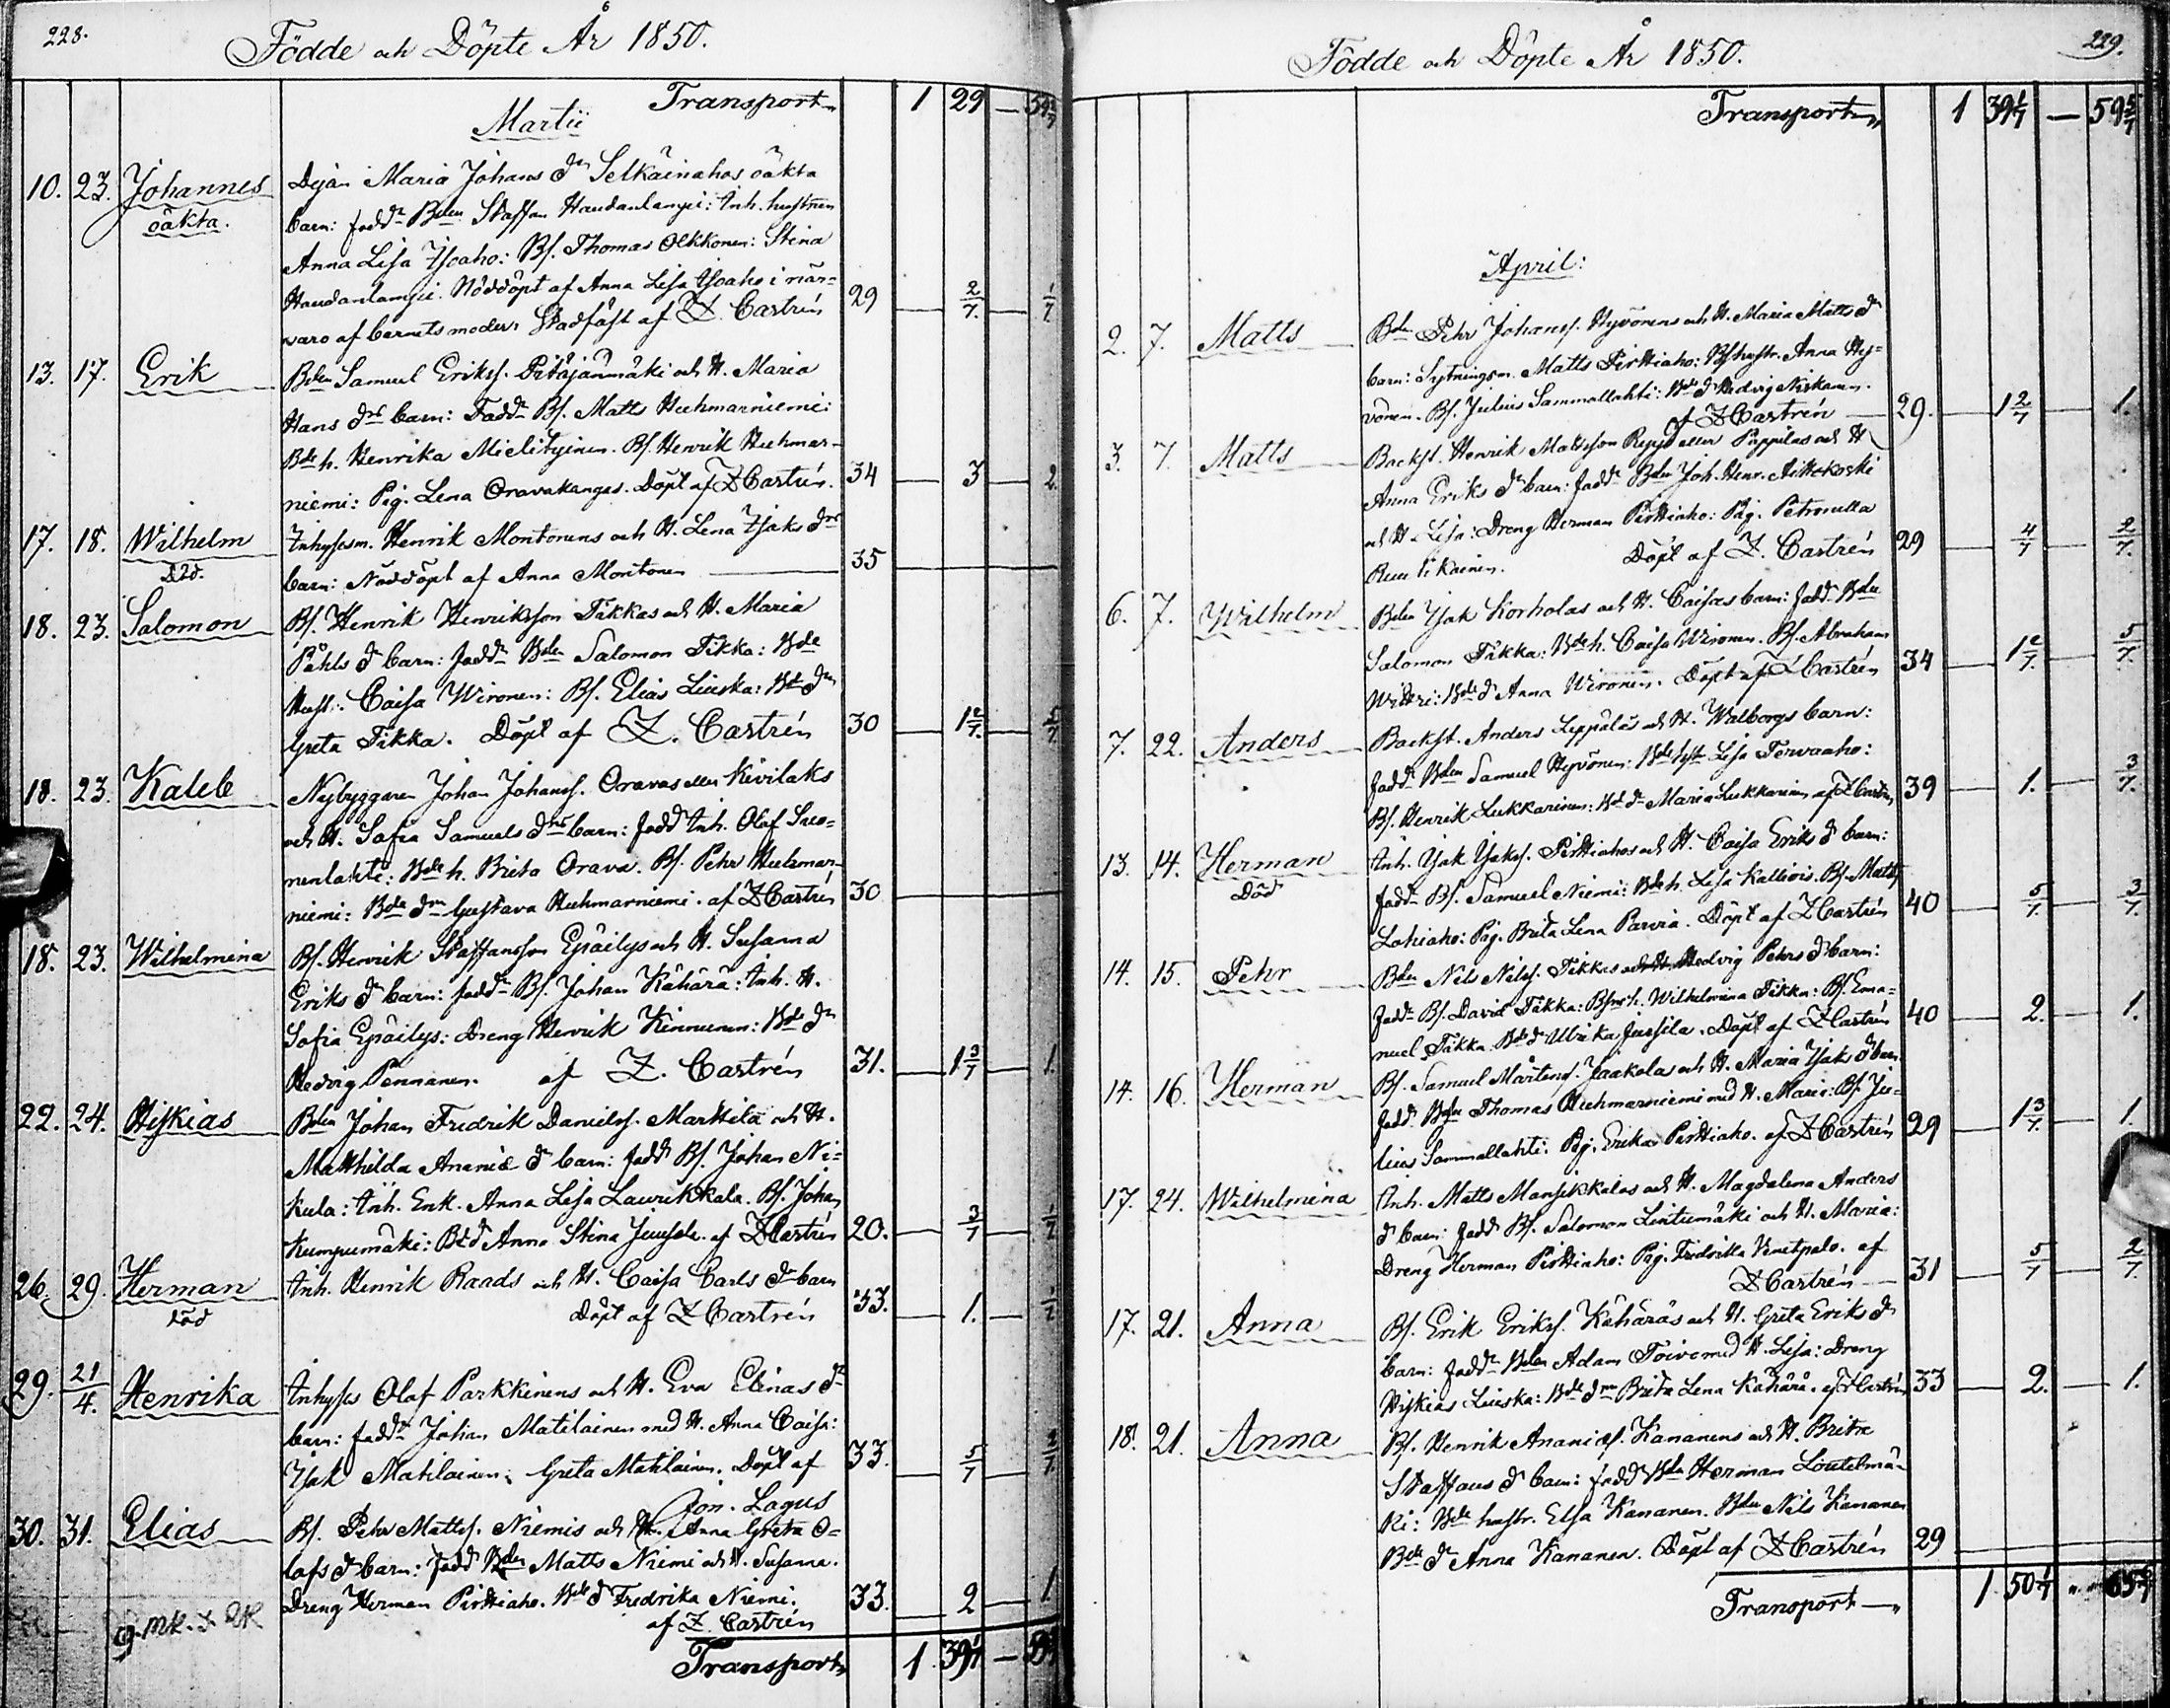 228.
Födde och Döpte År 1850.
Transport 1 29 — 59 5/7
Martii
10. 23. Johannes Dejan Maria Johans dr Selkäinahos oäkta
oäkta. barn: fadd. Bden Staffan Haudanlampi: Inh. hustrun
Anna Lisa Isoaho: Bs. Thomas Olkkonen: Stina
Haudanlampi. Nöddöpt af Anna Lisa Isoaho i när-
varo af barnets moder. Stadfäst af Z. Castrén 29 — 2/7. — 1/7.
13. 17. Erik Bden Samuel Erikss. Pitäjänmäki och H. Maria
Hans drs barn: Fadd. Bs. Matts Huhmarniemi:
Bde h. Henrika Mielityinen. Bs. Henrik Huhmar-
niemi: Pig. Lena Oravakangas. Döpt af Z Castrén. 34 — 3 — 2.
17. 18. Wilhelm Inhysesm. Henrik Montonens och H. Lena Isaks drs
Död. barn: Nöddöpt af Anna Montonen — 35
18. 23. Salomon Bs. Henrik Henriksson Tikkas och H. Maria
Påhls d barn: fadd. Bden Salomon Tikka: Bde
Hust. Caisa Wironen: Bs. Elias Liuska: Bde dr
Greta Tikka. Döpt af Z. Castrén 30 — 1 2/7. — 5/7.
18. 23. Kaleb Nybyggaren Johan Johanss. Oravas eller Kivilaks
och H. Sofia Samuels drs barn: fadd Inh. Olof Suo-
menlahti: Bde h. Brita Orava. Bs. Pehr Huhmar-
niemi: Bde drn Gustava Huhmarniemi. af Z Castrén 30
18. 23. Wilhelmina Bs. Henrik Staffansson Epäilys och H. Susanna
Eriks d barn: fadd. Bs. Johan Kähärä: Inh. H.
Sofia Epäilys: Dreng Henrik Kinnunen: Bde dr
Hedvig Pennanen. af Z. Castrén 31. — 1 3/7 — 1.
22. 24. Hiskias Bden Johan Fredrik Danielss. Marttila och H.
Mathilda Ananiæ d barn: fadd Bs. Johan Ni-
kula: Inh. Enk. Anna Lisa Laurikkala. Bs. Johan
Kumpumäki: Bde d Anna Stina Jussila. af Z Castrén 20. — 3/7 — 1/7
26. 29. Herman Inh. Henrik Raads och H. Caisa Carls d barn
död Döpt af Z Castrén 33. — 1. —
29. 21/4. Henrika Inhyses Olaf Parkkinens och H. Eva Elinas dr
barn: fadd. Johan Matilainen med H. Anna Caisa:
Isak Matilainen: Greta Matilainen. Döpt af 33. — 5/7 — 2/7
Jon. Lagus
30. 31. Elias Bs. Pehr Mattss. Niemis och H. Anna Greta O-
lofs d barn: fadd Bden Matts Niemi och H. Susanna.
Dreng Herman Pirttiaho. Bde d Fredrika Niemi. 33. — 2 — 1
af Z. Castrén
Transport 1. 39 1/7 —
Födde och Döpte År 1850. 229.
Transport 1 39 1/7 — 59 5/7
April:
2. 7. Matts Bden Pehr Johanss. Hyvönens och H. Maria Matts dr
barn: Sytningsm. Matts Pirttiaho: Bs hustr. Anna Hy-
vönen. Bs. Julius Sammallahti: Bde d Hedvig Niskanen.
af Z Castrén — 29. — 1 2/7 — 1.
3. 7. Matts Backst. Henrik Mattsson Repp eller Pappilas och H
Anna Eriks dr barn: fadd. Bden Joh. Henr. Aittokoski
och H. Lisa: Dreng Herman Pirttiaho: Pig. Petronella
Döpt af Z. Castrén 29 — 4/7 — 2/7.
6. 7. Wilhelm Bden Isak Korholas och H. Caisas barn: fadd. Bden
Salomon Tikka: Bde h. Caisa Wironen. Bs. Abraham
Wittri: Bde d Anna Wironen. Döpt af Z Castrén 34 — 1 2/7. — 5/7.
7. 22. Anders Backst. Anders Leppäläs och H. Walborgs barn:
fadd. Bden Samuel Hyvönen: Lisa Tervaaho:
Bs. Henrik Lukkarinen: Bde dr Maria Lukkarinen af Z Castrén 39 — 1. — 3/7.
13. 14. Herman Inh. Isak Isakss. Pirttiahos och H. Caisa Eriks d barn:
Död fadd. Bs. Samuel Niemi: Bde h. Lisa Kalliois. Bs. Matts
Lahiaho: Pig. Brita Lena Parvia. Döpt af Z Castrén 40 — 5/7. — 3/7.
14. 15. Pehr Bden Nils Nilss. Tikkas och H. Hedvig Pehrs d barn:
Fadd. Bs. David Tikka: Wilhelmina Tikka: Bs. Ema-
nuel Tikka. Bde d Ulrika Jussila. Döpt af Z Castrén 40 — 2. — 1.
14. 16. Herman Bs. Samuel Mårtenss. Jaakola och H. Maria Isaks d barn
fadd. Bden Thomas Huhmarniemi med H. Maria: Bs. Ju-
lius Sammallahti. Pig. Erika Pirttiaho. af Z Castrén 29 — 1 3/7. — 1.
17. 24. Wilhelmina Inh. Matts Mansikkalas och H. Magdalena Anders
d barn: fadd Bs. Salomon Lintumäki och H. Maria:
Dreng Herman Pirttiaho: Pig. Fredrika Venetpalo. af
Z Castrén — 31 — 5/7 — 2/7.
17. 21. Anna Bs. Erik Erikss. Kähäräs och H. Greta Eriks dr
barn: fadd. Bden Adam Toive med H. Lisa: Dreng
Hiskias Liuska: Bde drn Brita Lena Kähärä. af Z Castrén 33 — 2. — 1.
18. 21. Anna Bs. Henrik Ananiæs. Kananens och H. Brita
Staffans d barn: fadd Bden Herman Loutelmä-
ki: Bde hustr. Elsa Kananen. Bden Nils Kananen
Bde dr Anna Kananen. Döpt af Z Castrén 29
Transport — 1. 50 1/7 „